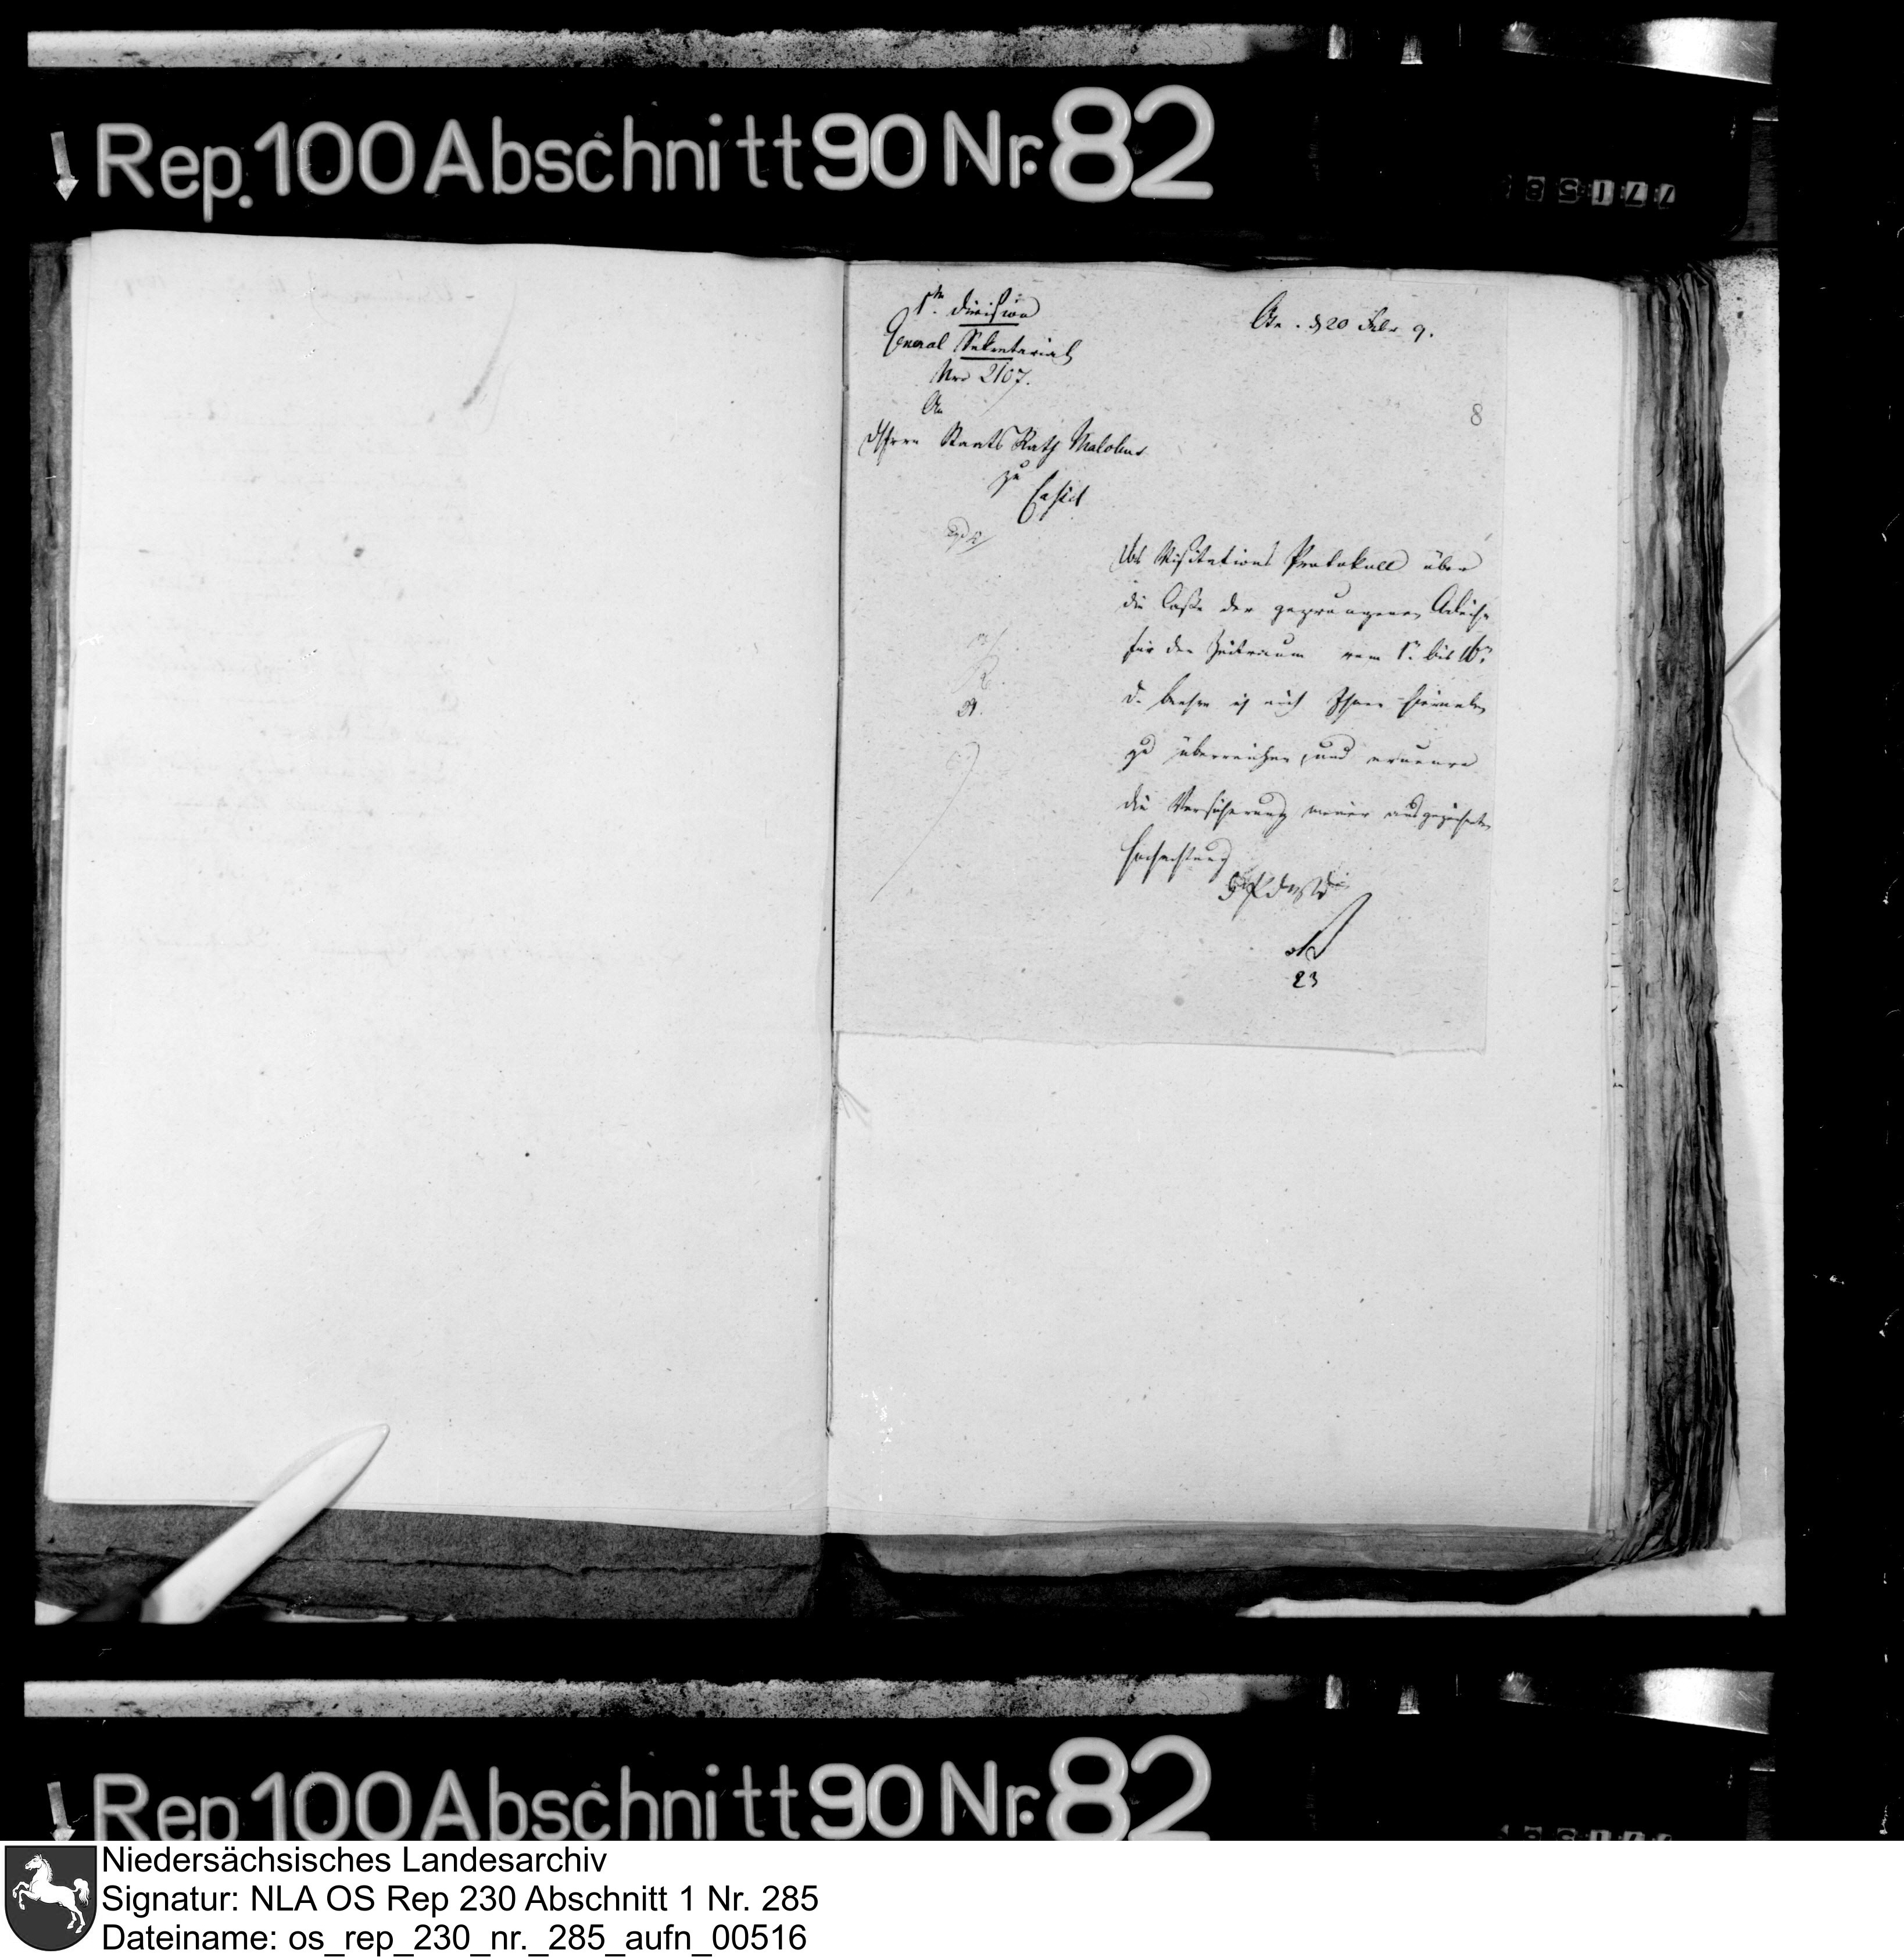 Rep. 100 Abschnitt 90 Nr. 82
1te. Division
General Sekretariat
Nro 2107.
An
d Herrn Staats Rath Malchus
zu
Cassel
20 Febr 9.
8
Das Visitations Protokoll über
die Casse der gezwungenen Anleihe
für den Zeitraum vom 1n. bis 16n.
d. beehre ich mich Ihnen hierneben
zu überreichen, und erneuere
die Versicherung meiner ausgezeichneten
Hochachtung
23
Rep 100 Abschnitt 90 Nr. 82
Niedersächsisches Landesarchiv
Signatur: NLA OS Rep 230 Abschnitt 1 Nr. 285
Dateiname: os_rep_230_nr._285_aufn_00516